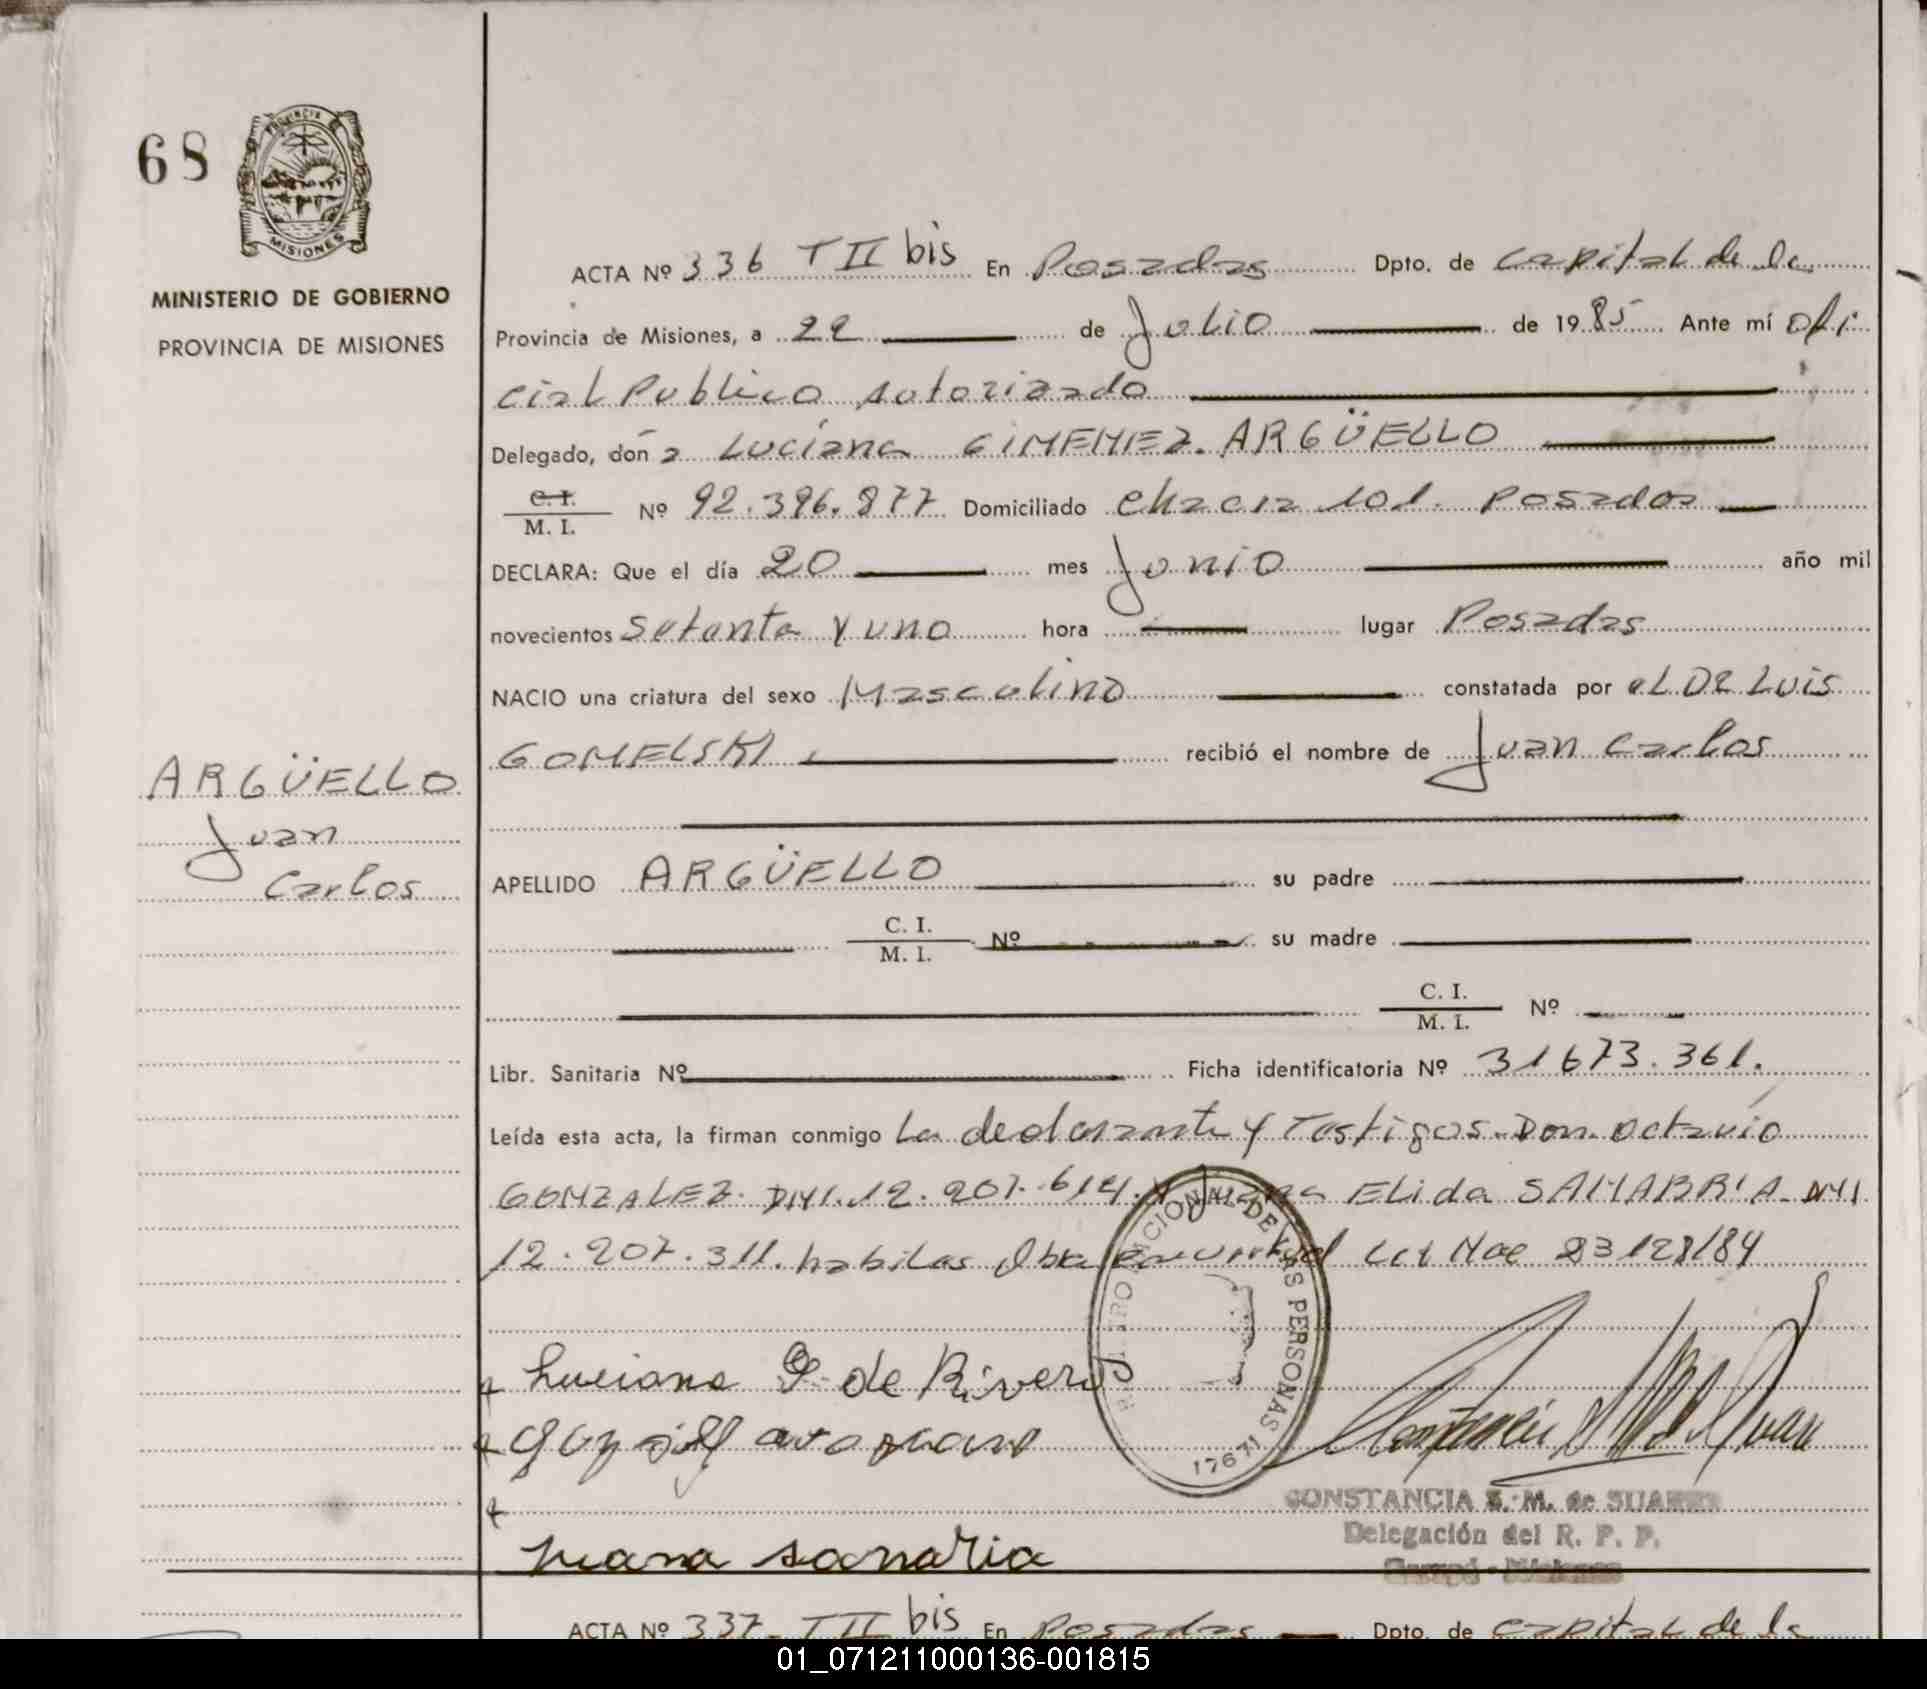 68
PROVINCIA DE
MISIONES
MINISTERIO DE GOBIERNO
PROVINCIA DE MISIONES
ACTA Nº 336 T II bis En Posadas Dpto. de capital de la
Provincia de Misiones, a 22 de Julio de 1985 Ante mí ofi
cial Publico autorizado
Delegado, don a Luciana GIMENEZ. ARGÜELLO
C. I.
M. I. Nº 92.396.877 Domiciliado chacra 101. Posadas
DECLARA: Que el día 20 mes Junio año mil
novecientos setenta y uno hora lugar Posadas
NACIO una criatura del sexo Masculino constatada por el DR Luis
GOMELSKI recibió el nombre de Juan Carlos
ARGÜELLO
Juan
Carlos
APELLIDO ARGÜELLO su padre
C. I.
M. I. Nº su madre
C. I.
M. I. Nº
Libr. Sanitaria Nº Ficha identificatoria Nº 31673.361.
Leída esta acta, la firman conmigo La declarante y Testigos. Don. Octavio
GONZALEZ. DNI. 12.207.614. y Juana Elida SANABRIA. DNI
12.207.311. habiles Ley Nac 23128/84
NACIONAL DE LAS PERSONAS
1767
Luciana G. de Rivero
Juana sanabria
CONSTANCIA S. M. de SUAREZ
Delegación del R. P. P.
Garupá - Misiones
ACTA Nº 337 T II bis En Posadas Dpto. de capital de la
01_071211000136-001815